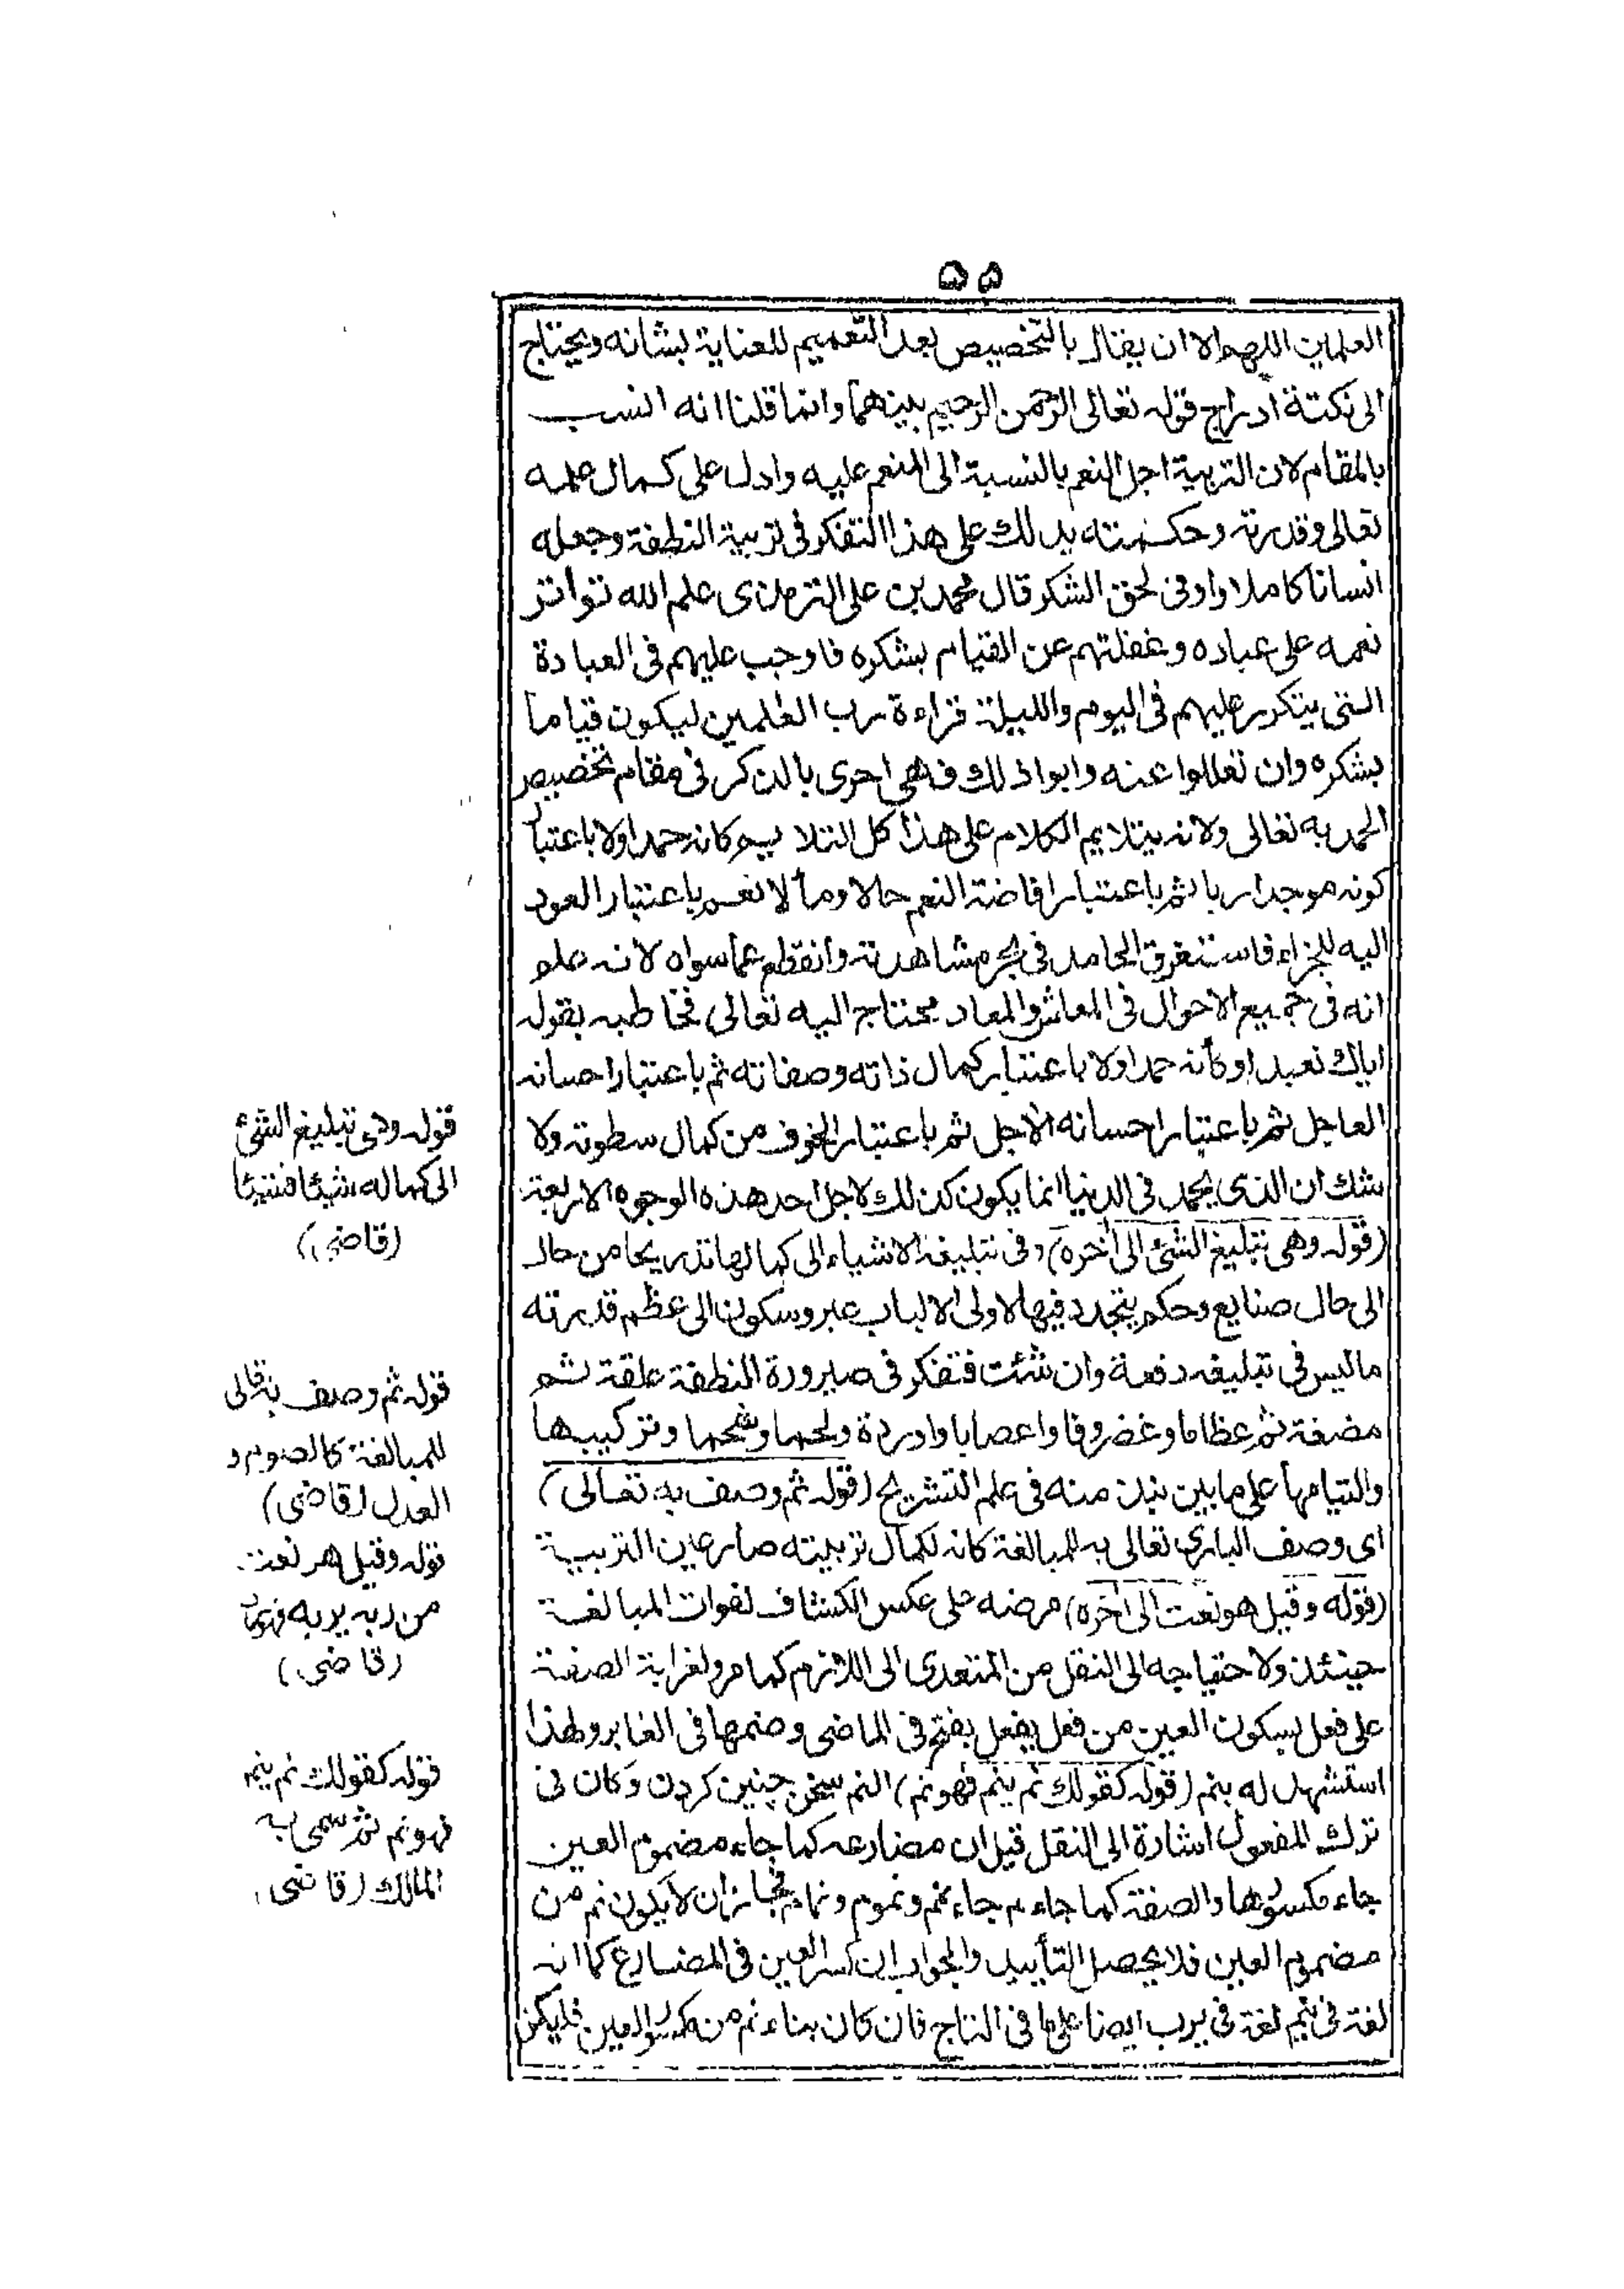 ٥٥
العلمين اللهم الا ان يقال بالتخصيص بعد التعميم للعناية بشانه ويحتاج
الى نكتة ادراج قوله تعالى الرحمن الرحيم بينهما وانما قلنا انه انسب
بالمقام لان التربية اجل النعم بالنسبة الى المنعم عليه وادل على كمال علمه
تعالى وقدرته وحكمته يدلك على هذا التفكر فى تربية النطفة وجعله
انسانا كاملا واوفى لحق الشكر قال محمد بن على الترمذى علم الله تواتر
نعمه على عباده وغفلتهم عن القيام بشكره فاوجب عليهم فى العبادة
التى يتكرر عليهم فى اليوم والليلة قراءة رب العلمين ليكون قياما
بشكره وان تعللوا عنه وابوا ذلك فهى احرى بالذكر فى مقام تخصيص
الحمد به تعالى ولانه يتلايم الكلام على هذا كل التلايم وكانه حمد اولا باعتبار
كونه موجدا ربا ثم باعتبار افاضة النعم حالا ومألا ثم باعتبار العود
اليه للجزاء فاستغرق الحامد فى بحر مشاهدته وانقطع عما سواه لانه علم
انه فى جميع الاحوال فى المعاش والمعاد محتاج اليه تعالى فخاطبه بقوله
اياك نعبد او كأنه حمد اولا باعتبار كمال ذاته وصفاته ثم باعتبار احسانه
العاجل ثم باعتبار احسانه الأجل ثم باعتبار الخوف من كمال سطوته ولا
شك ان الذى يحمد فى الدنيا انما يكون كذلك لاجل احد هذه الوجوه الاربعة
(قوله وهى تبليغ الشئ الى أخره) وفى تبليغه الاشياء الى كمالها تدريجا من حال
الى حال صنايع وحكم يتجدد فيها لاولى الالباب عبر وسكون الى عظم قدرته
ماليس فى تبليغه دفعة وان شئت فتفكر فى صيرورة النطفة علقة ثم
مضغة ثم عظاما وغضروفا واعصابا واوردة ولحما وشحما وتركيبها
والتيامها على ما بين نبذ منه فى علم التشريح (قوله ثم وصف به تعالى)
اى وصف البارى تعالى به للمبالغة كانه لكمال تربيته صار عين التربية
(قوله وقيل هو نعت الى أخره) مرضه على عكس الكشاف لفوات المبالغة
حينئذ ولاحتياجه الى النقل من المتعدى الى اللازم كما مر ولغرابة الصفة
على فعل بسكون العين من فعل يفعل بفتح فى الماضى وضمها فى الغابر ولهذا
استشهد له بنم (قوله كقولك نم ينم فهو نم) النم سخن چينين كردن وكان فى
ترك المفعول اشارة الى النقل قيل ان مضارعه كما جاء مضموم العين
جاء مكسورها والصفة كما جاء نم جاء نم ونموم ونمام فجاز ان لا يكون نم من
مضموم العين فلا يحصل التأييد والجواب ان كسر العين فى المضارع كما انه
لغة فى ينم لغة فى يرب ايضا على ما فى التاج فان كان بناء نم من مكسور العين فليكن
قوله وهى تبليغ الشئ
الى كماله شيئا فشيئا
(قاضى)
قوله ثم وصف به تعالى
للمبالغة كالصوم و
العدل (قاضى)
قوله وقيل هو نعت
من ربه يربه فهو رب
(قاضى)
قوله كقولك نم ينم
فهو نم ثم سمى به
المالك (قاضى)